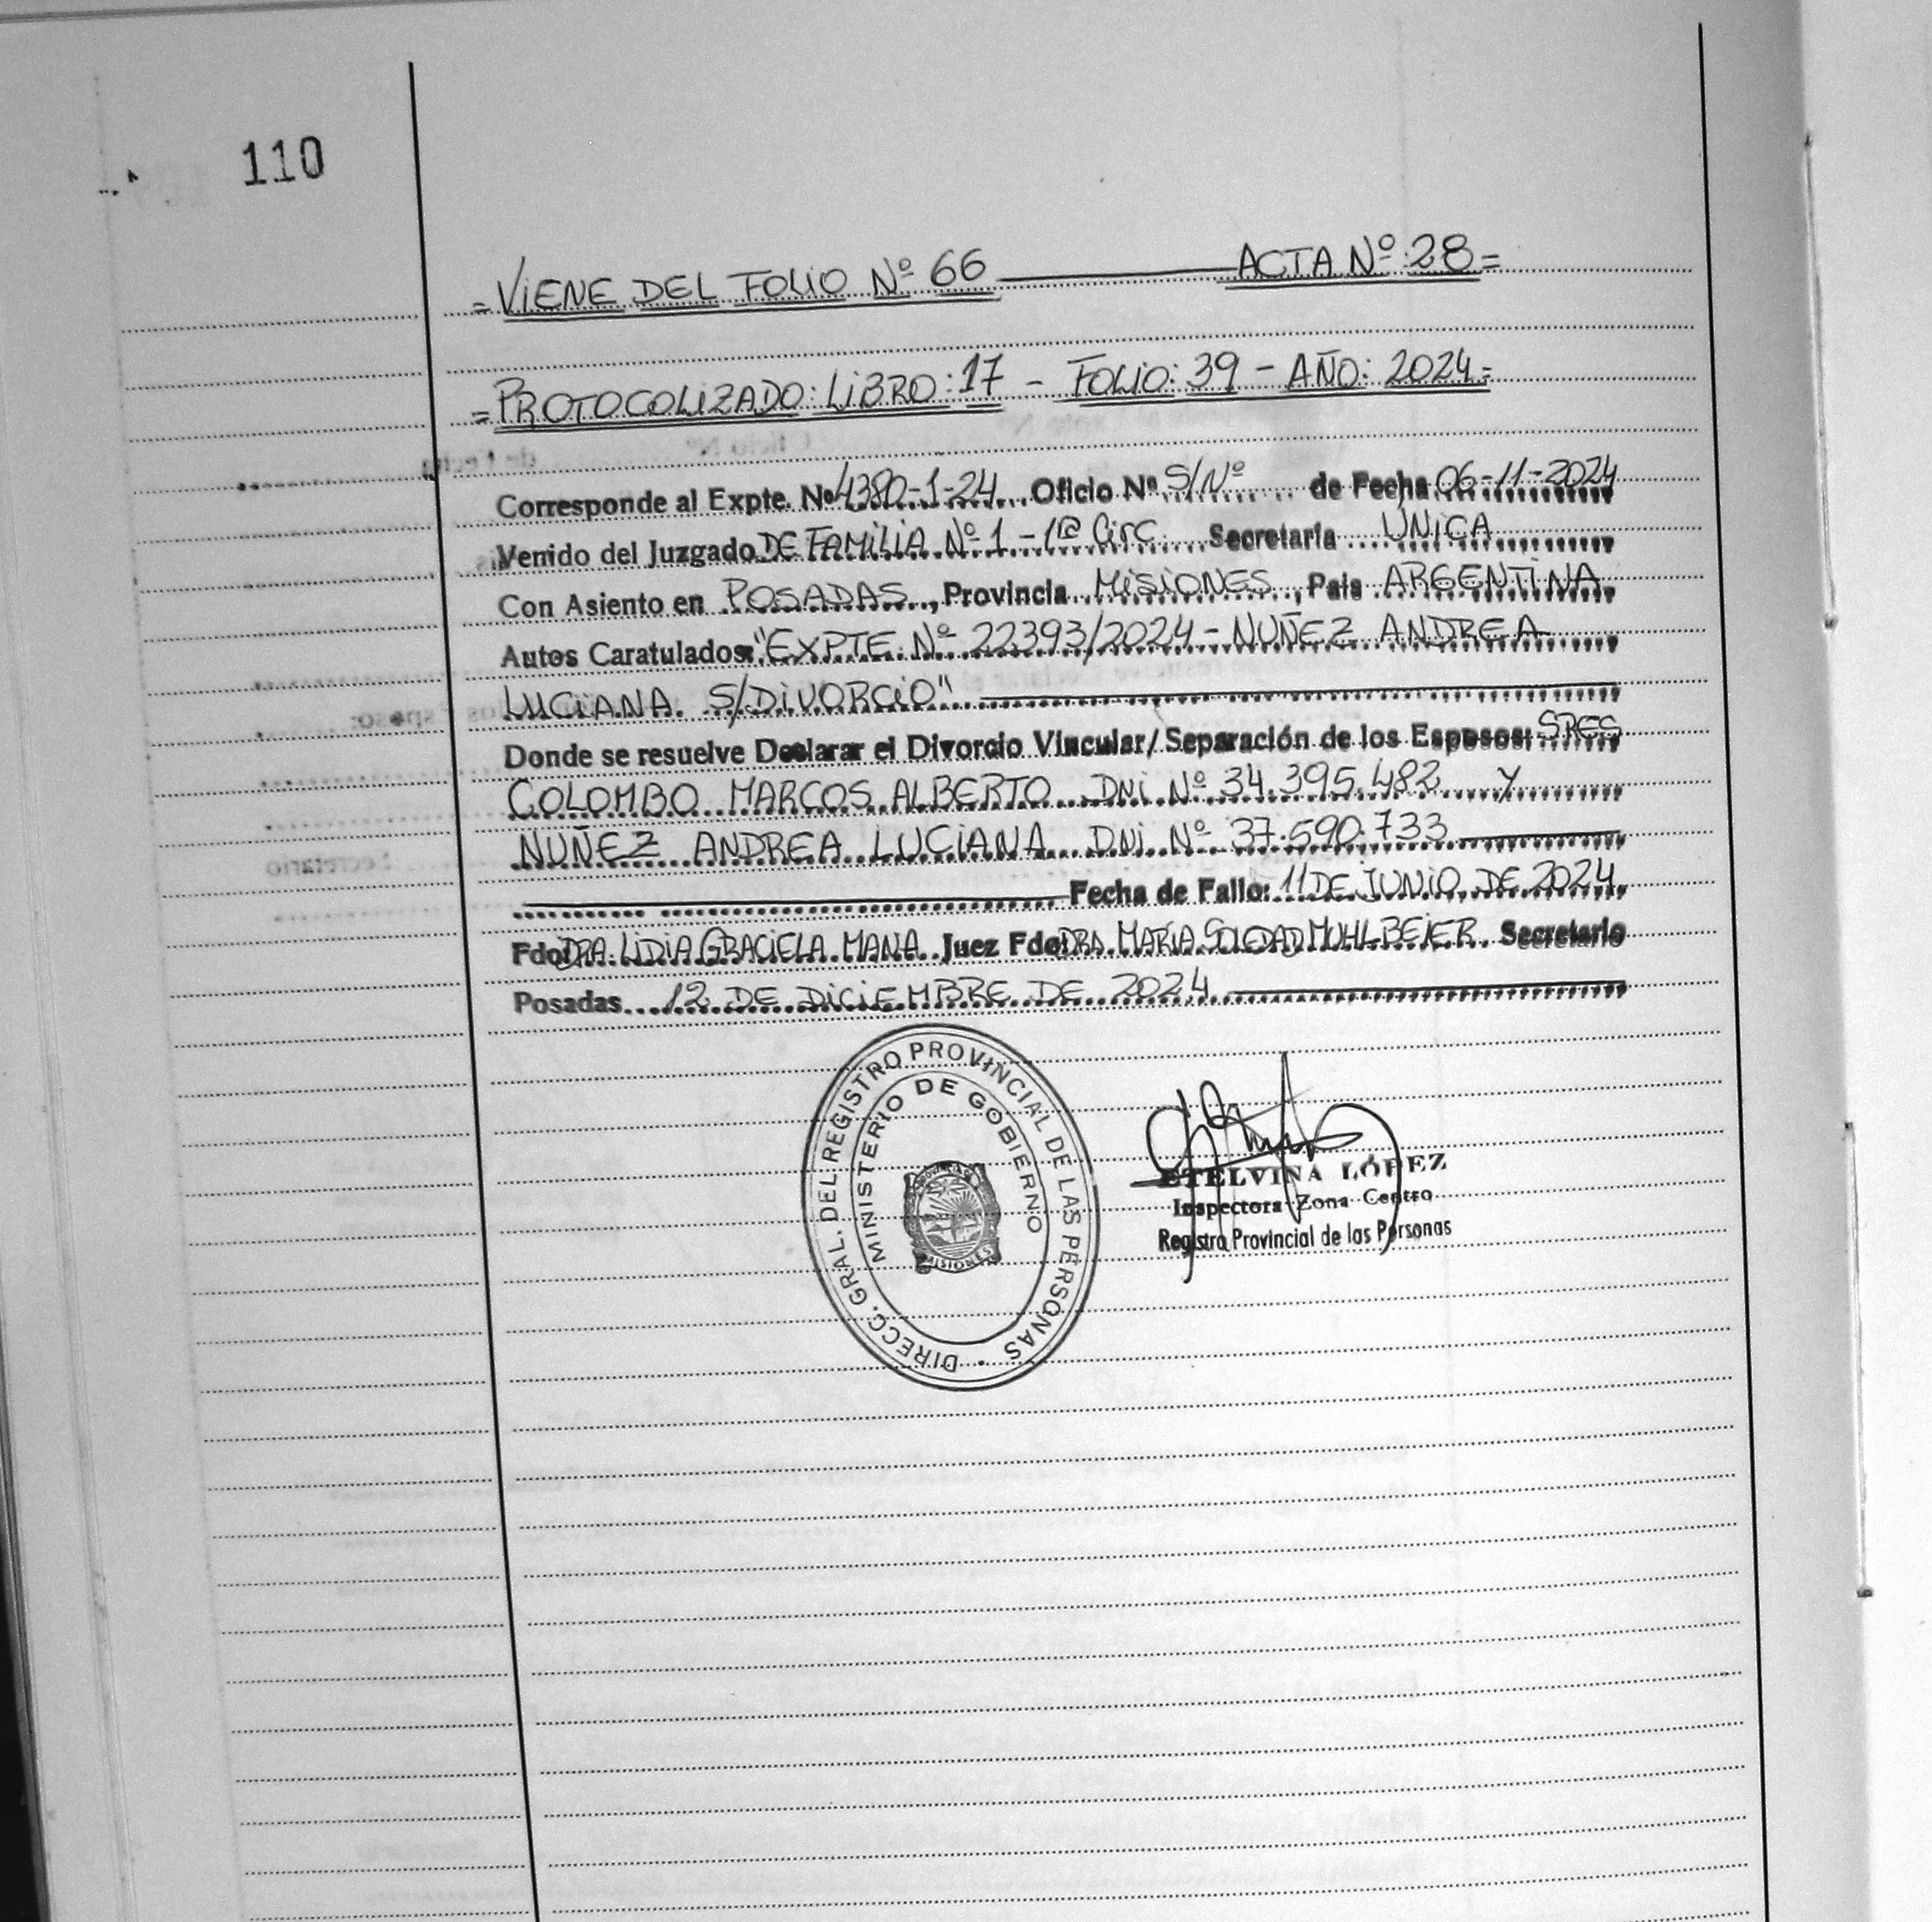 110
= VIENE DEL FOLIO Nº 66 ACTA Nº: 28 =
= PROTOCOLIZADO: LIBRO: 17 - FOLIO: 39 - AÑO: 2024 =
Corresponde al Expte. Nº 4380-1-24 Oficio Nº S/Nº de Fecha 06-11-2024
Venido del Juzgado DE FAMILIA Nº 1 - 1ra Circ Secretaría UNICA
Con Asiento en POSADAS, Provincia MISIONES, País ARGENTINA
Autos Caratulados: "EXPTE Nº 22393/2024 - NUÑEZ ANDREA
LUCIANA S/DIVORCIO"
Donde se resuelve Declarar el Divorcio Vincular/Separación de los Esposos: SRES
COLOMBO MARCOS ALBERTO DNI Nº 34.395.482 Y
NUÑEZ ANDREA LUCIANA DNI Nº 37.590.733
Fecha de Fallo: 11 DE JUNIO DE 2024
Fdo: DRA. LIDIA GRACIELA MANA Juez Fdo: DRA. MARIA SOLEDAD MUHLBEIER Secretario
Posadas 12 DE DICIEMBRE DE 2024
DIRECC. GRAL. DEL REGISTRO PROVINCIAL DE LAS PERSONAS
MINISTERIO DE GOBIERNO
MISIONES
ETELVINA LÓPEZ
Inspectora Zona Centro
Registro Provincial de las Personas